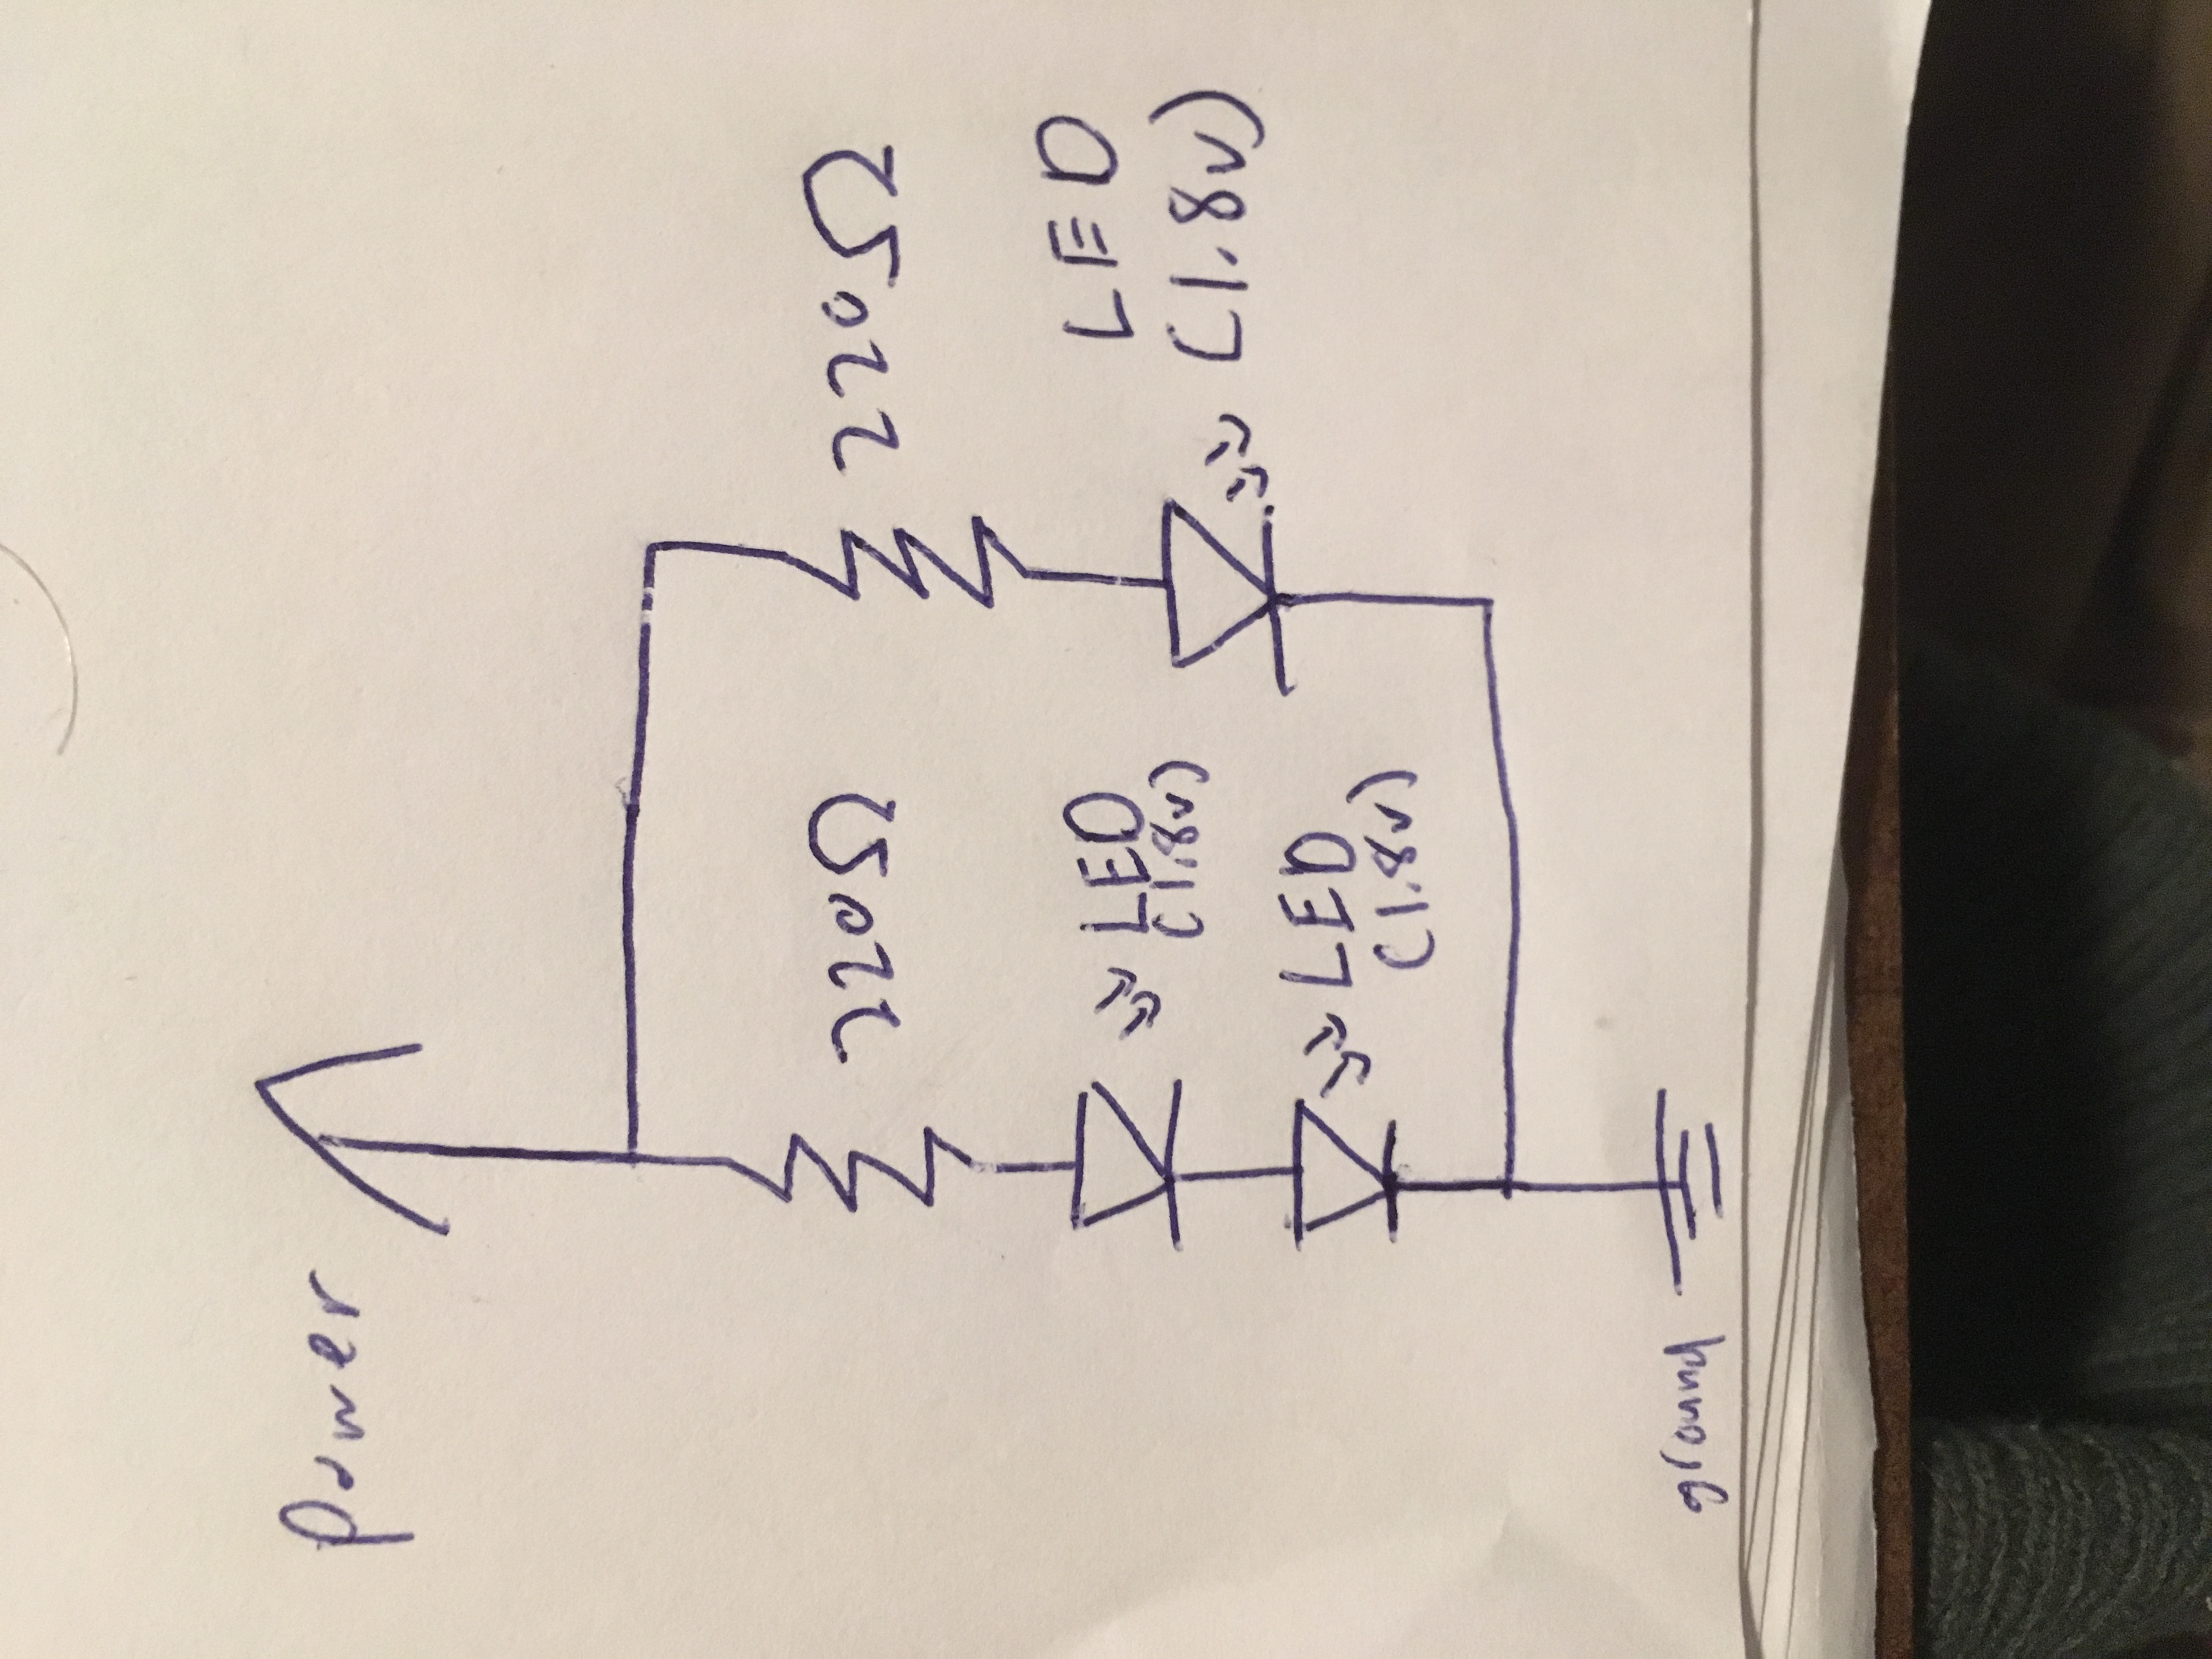 Power
220Ω
220Ω
LED
(1.8v)
LED
(1.8v)
LED
(1.8v)
ground